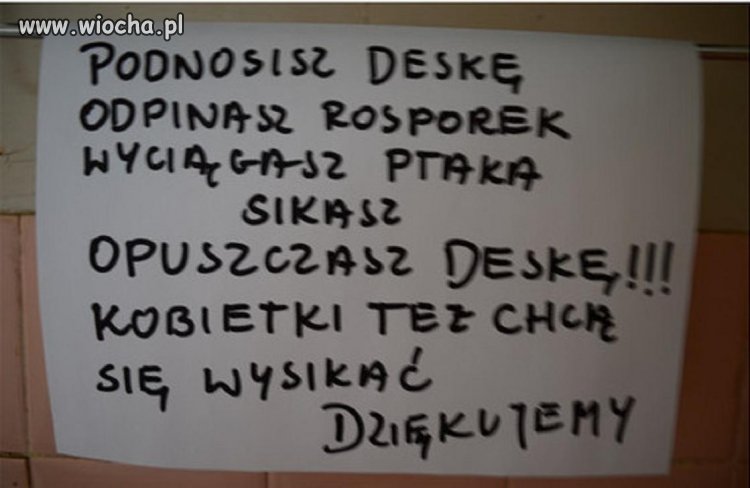 www.wiocha.pl
PODNOSISZ DESKĘ
ODPINASZ ROSPOREK
WYCIĄGASZ PTAKA
SIKASZ
OPUSZCZASZ DESKĘ!!!
KOBIETKI TEŻ CHCĄ
SIĘ WYSIKAĆ
DZIĘKUJEMY